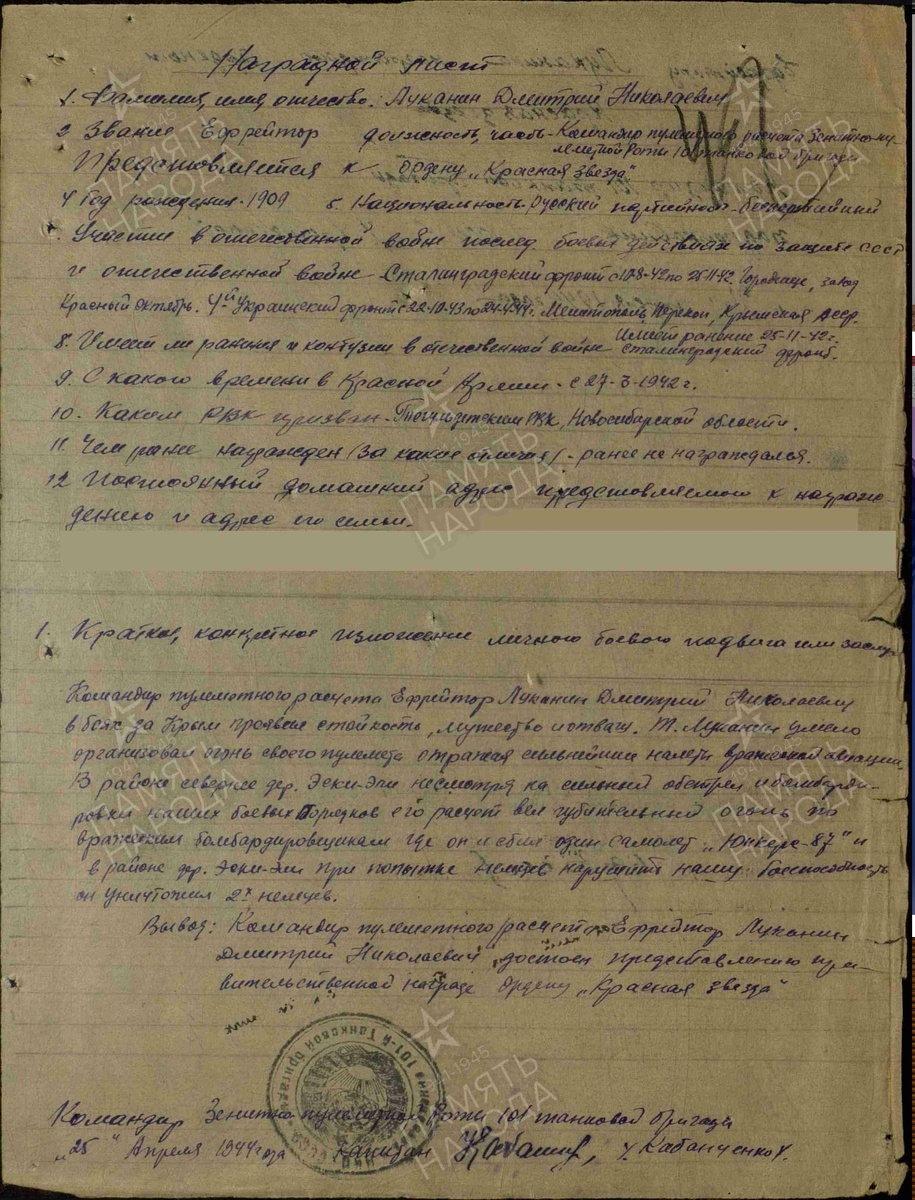 Наградной лист
1. Фамилия, имя, отчество: Луканин Дмитрий Николаевич
2 Звание Ефрейтор должность, часть - Командир пулеметного расчета Зенитно-пу-
леметной Роты 101 танковой бригады
Представляется к ордену „Красная Звезда"
4 Год рождения - 1909 5. Национальность - Русский партийность - беспартийный
Участие в отечественной войне послед. боевых действиях по защите СССР
и отечественной войне - Сталинградский фронт с 10-8-42 по 25-11-42. Городище, завод
Красный Октябрь. 4й Украинский фронт с 22-10-43 по 24-4-44г. Мелитополь, Перекоп, Крымская АССР.
8. Имеет ли ранения и контузии в отечественной войне Имеет ранение 25-11-42г. Сталинградский фронт.
9. С какого времени в Красной Армии - с 27-3-1942 г.
10. Каким РВК призван - РВК, Новосибирской области.
11. Чем ранее награжден (За какие отличия) - ранее не награждался.
12 Постоянный домашний адрес представляемого к награж-
дению и адрес его семьи -
1. Краткое, конкретное изложение личного боевого подвига или заслуг
Командир пулеметного расчета Ефрейтор Луканин Дмитрий Николаевич
в боях за Крым проявил стойкость, мужество и отвагу. Т. Луканин умело
организовал огонь своего пулемета отражая сильнейшие налеты вражеской авиации.
В районе севернее дер. Эски-Эли несмотря на сильный обстрел и бомбарди-
ровки наших боевых Порядков его расчет вел губительный огонь по
вражеским бомбардировщикам где он и сбил один самолет „Юнкерс-87" и
в районе дер. Эски-Эли при попытке немцев нарушить нашу боеспособность
он уничтожил 2х немцев.
Вывод: Командир пулеметного расчета Ефрейтор Луканин
Дмитрий Николаевич достоен представлению пра-
вительственной награде ордену „Красная Звезда"
Командир Зенитно пулеметной Роты 101 танковой бригады
„25" Апреля 1944 года Капитан / Кабанченко /
101-й Танковой бригады
ПАМЯТЬ НАРОДА
1941-1945